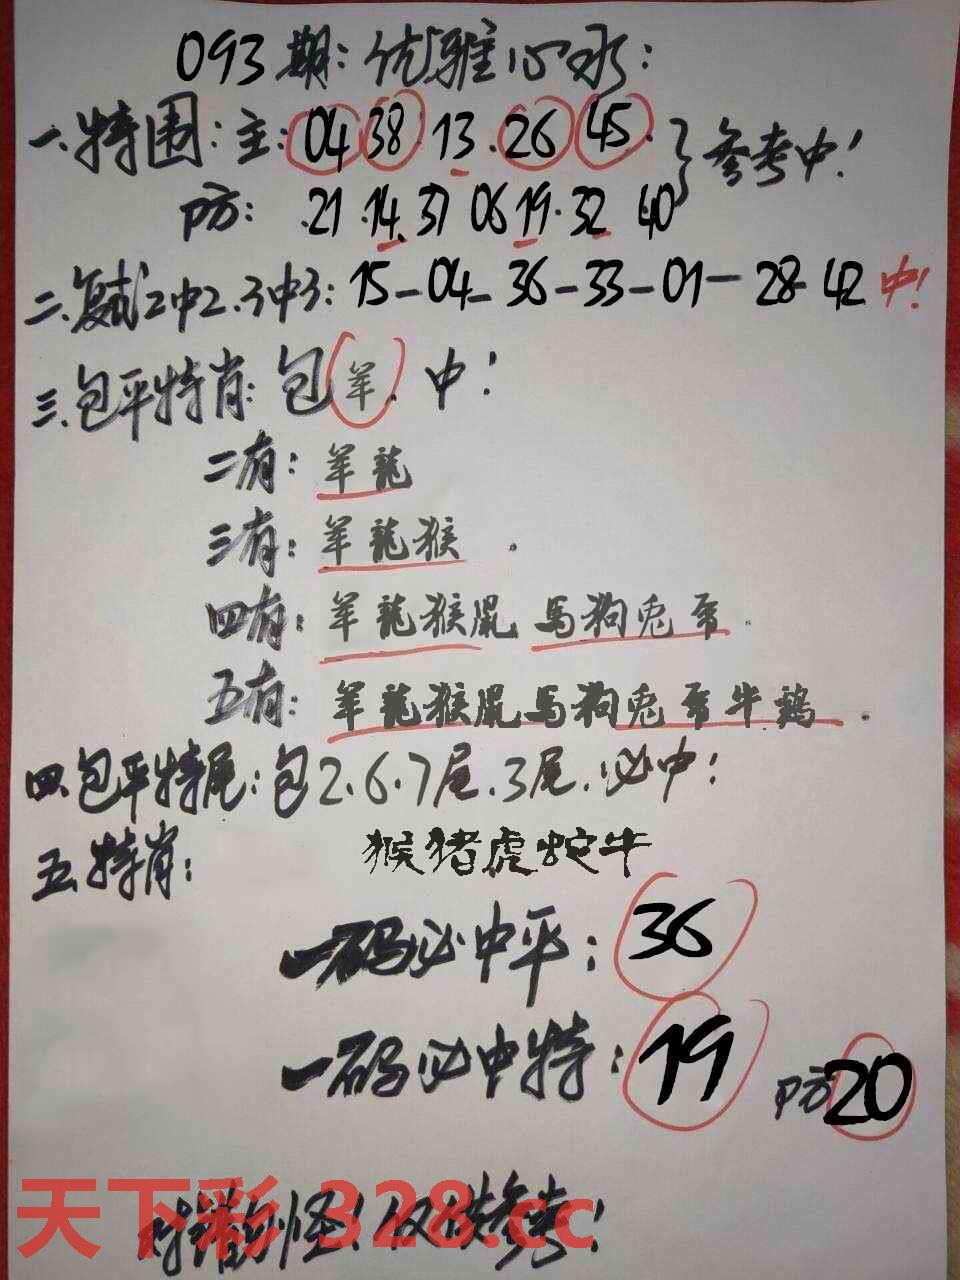 093期:优雅心水:
一.特围:主:04 38.13.26 45.}参考中!
防:.21.14.37 06 19.32 40
二.复式2中2.3中3:15-04-36-33-01-28-42 中!
三.包平特肖:包羊.中!
二有:羊龍
三有:羊龍猴.
四有:羊龍猴鼠 馬狗兔
五有:羊龍猴鼠馬狗兔 牛鷄.
四.包平特尾:包2.6.7尾.3尾.必中!
五.特肖:猴猪虎蛇牛
一码必中平:36
一码必中特:19 防20
对错勿怪!仅供参考!
天下彩 328.cc